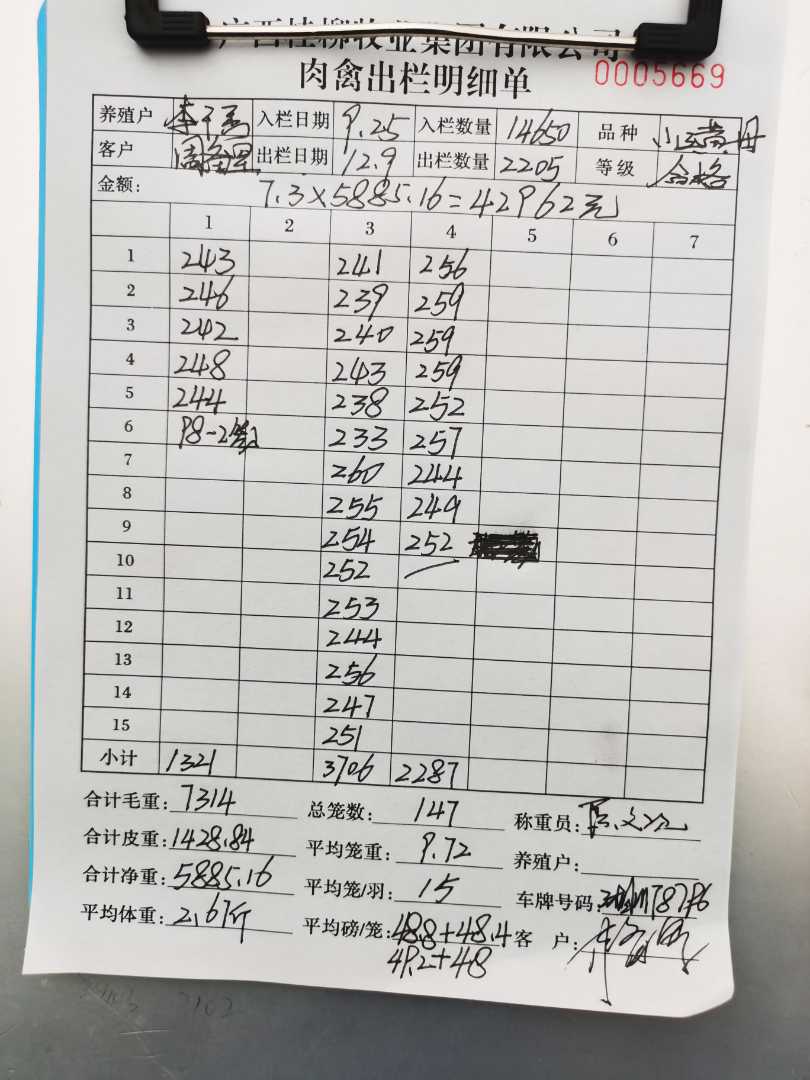 广西桂柳牧业集团有限公司
肉禽出栏明细单 0005669
养殖户 李千 入栏日期 9.25 入栏数量 14650 品种
客户 周 出栏日期 12.9 出栏数量 2205 等级 合格
金额: 7.3×5885.16=42962元
1 2 3 4 5 6 7
1 243 241 256
2 246 239 259
3 242 240 259
4 248 243 259
5 244 238 252
6 P8-2 233 257
7 260 244
8 255 249
9 254 252
10 252
11 253
12 244
13 256
14 247
15 251
小计 1321 3706 2287
合计毛重: 7314 总笼数: 147 称重员:
合计皮重: 1428.84 平均笼重: 9.72 养殖户:
合计净重: 5885.16 平均笼/羽: 15 车牌号码:
平均体重: 2.67斤 平均磅/笼: 48.8+48.4 客 户:
49.2+48